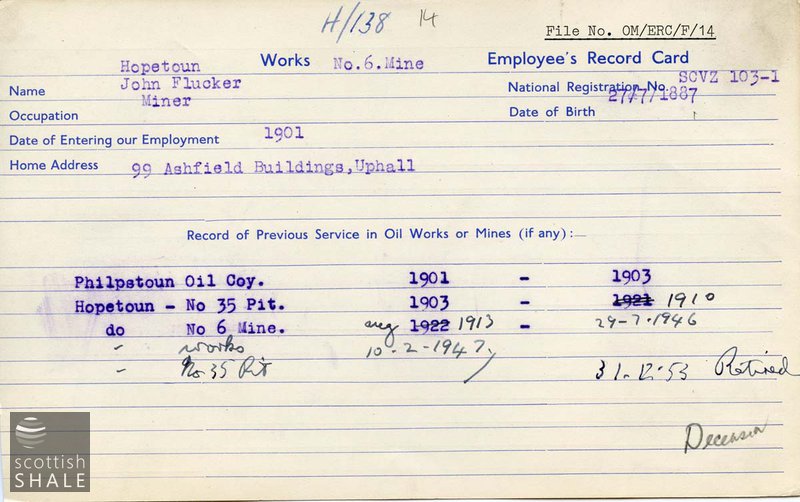 H/138 14
File No. OM/ERC/F/14
Hopetoun Works No.6.Mine Employee's Record Card
Name John Flucker National Registration No. SCVZ 103-1
Occupation Miner Date of Birth 27/7/1887
Date of Entering our Employment 1901
Home Address 99 Ashfield Buildings,Uphall
Record of Previous Service in Oil Works or Mines (if any):—
Philpstoun Oil Coy. 1901 - 1903
Hopetoun - No 35 Pit. 1903 - 1921 1910
do No 6 Mine. aug 1922 1913 - 29-7-1946
" works 10-2-1947
" No 35 Pit 31-12-53 Retired
scottish
SHALE